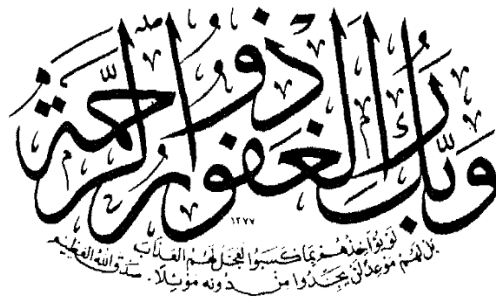 وَرَبُّكَ الْغَفُورُ ذُو الرَّحْمَةِ صلے
١٢٧٧
لَوْ يُؤَاخِذُهُمْ بِمَا كَسَبُوا لَعَجَّلَ لَهُمُ الْعَذَابَ
بَلْ لَهُمْ مَوْعِدٌ لَنْ يَجِدُوا مِنْ دُونِهِ مَوْئِلًا . صَدَقَ اللهُ الْعَظِيمُ